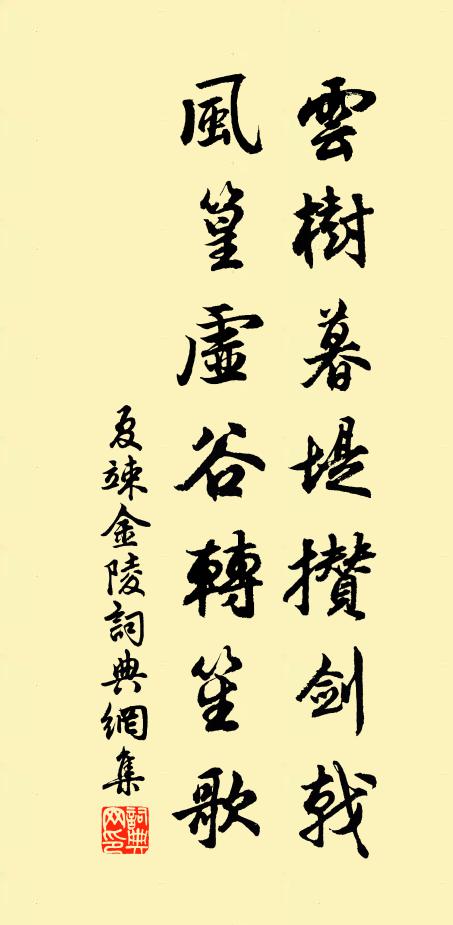 雲樹暮堤攢劍戟
風篁虛谷轉笙歌
夏竦金陵詞典網集
詞典网印